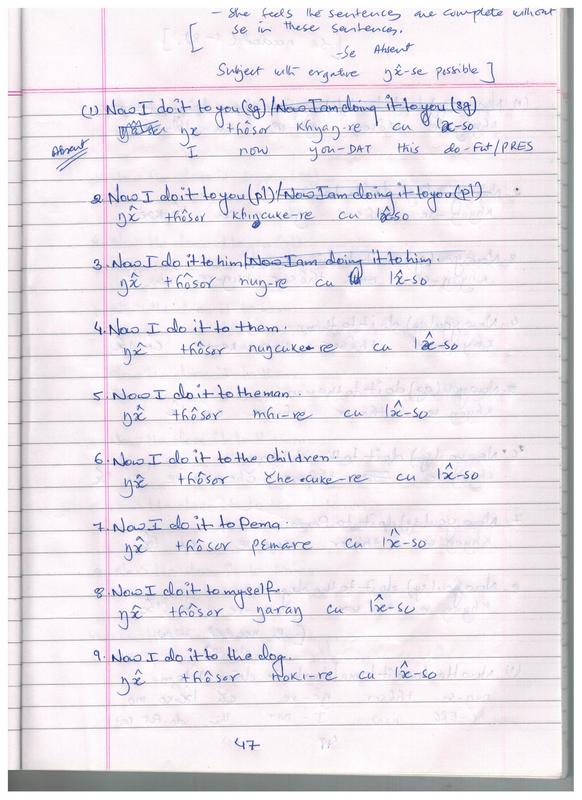 - She feels the sentences are complete without
se in these sentences.
-Se Absent
Subject with ergative ŋx̂-se possible]
(1) Now I do it to you(sg)/Now I am doing it to you (sg)
Absent
ŋx thôsor khyaŋ-re cu lx-so
I now you-DAT this do-Fut/PRES
2. Now I do it to you(pl)/Now I am doing it to you(pl)
ŋx̂ thôsor khiŋcuke-re cu lx̂so
3. Now I do it to him/Now I am doing it to him.
ŋx̂ thôsor nuŋ-re cu lx̂-so
4. Now I do it to them.
ŋx̂ thôsor nuŋcuke-re cu lx̂-so
5. Now I do it to the man.
ŋx̂ thôsor mhi-re cu lx̂-so
6. Now I do it to the children.
ŋx̂ thôsor cuke-re cu lx̂-so
7. Now I do it to Pema.
ŋx̂ thôsor pemare cu lx̂-so
8. Now I do it to myself.
ŋx̂ thôsor ŋaraŋ cu lx̂-so
9. Now I do it to the dog.
ŋx̂ thôsor noki-re cu lx̂-so
47